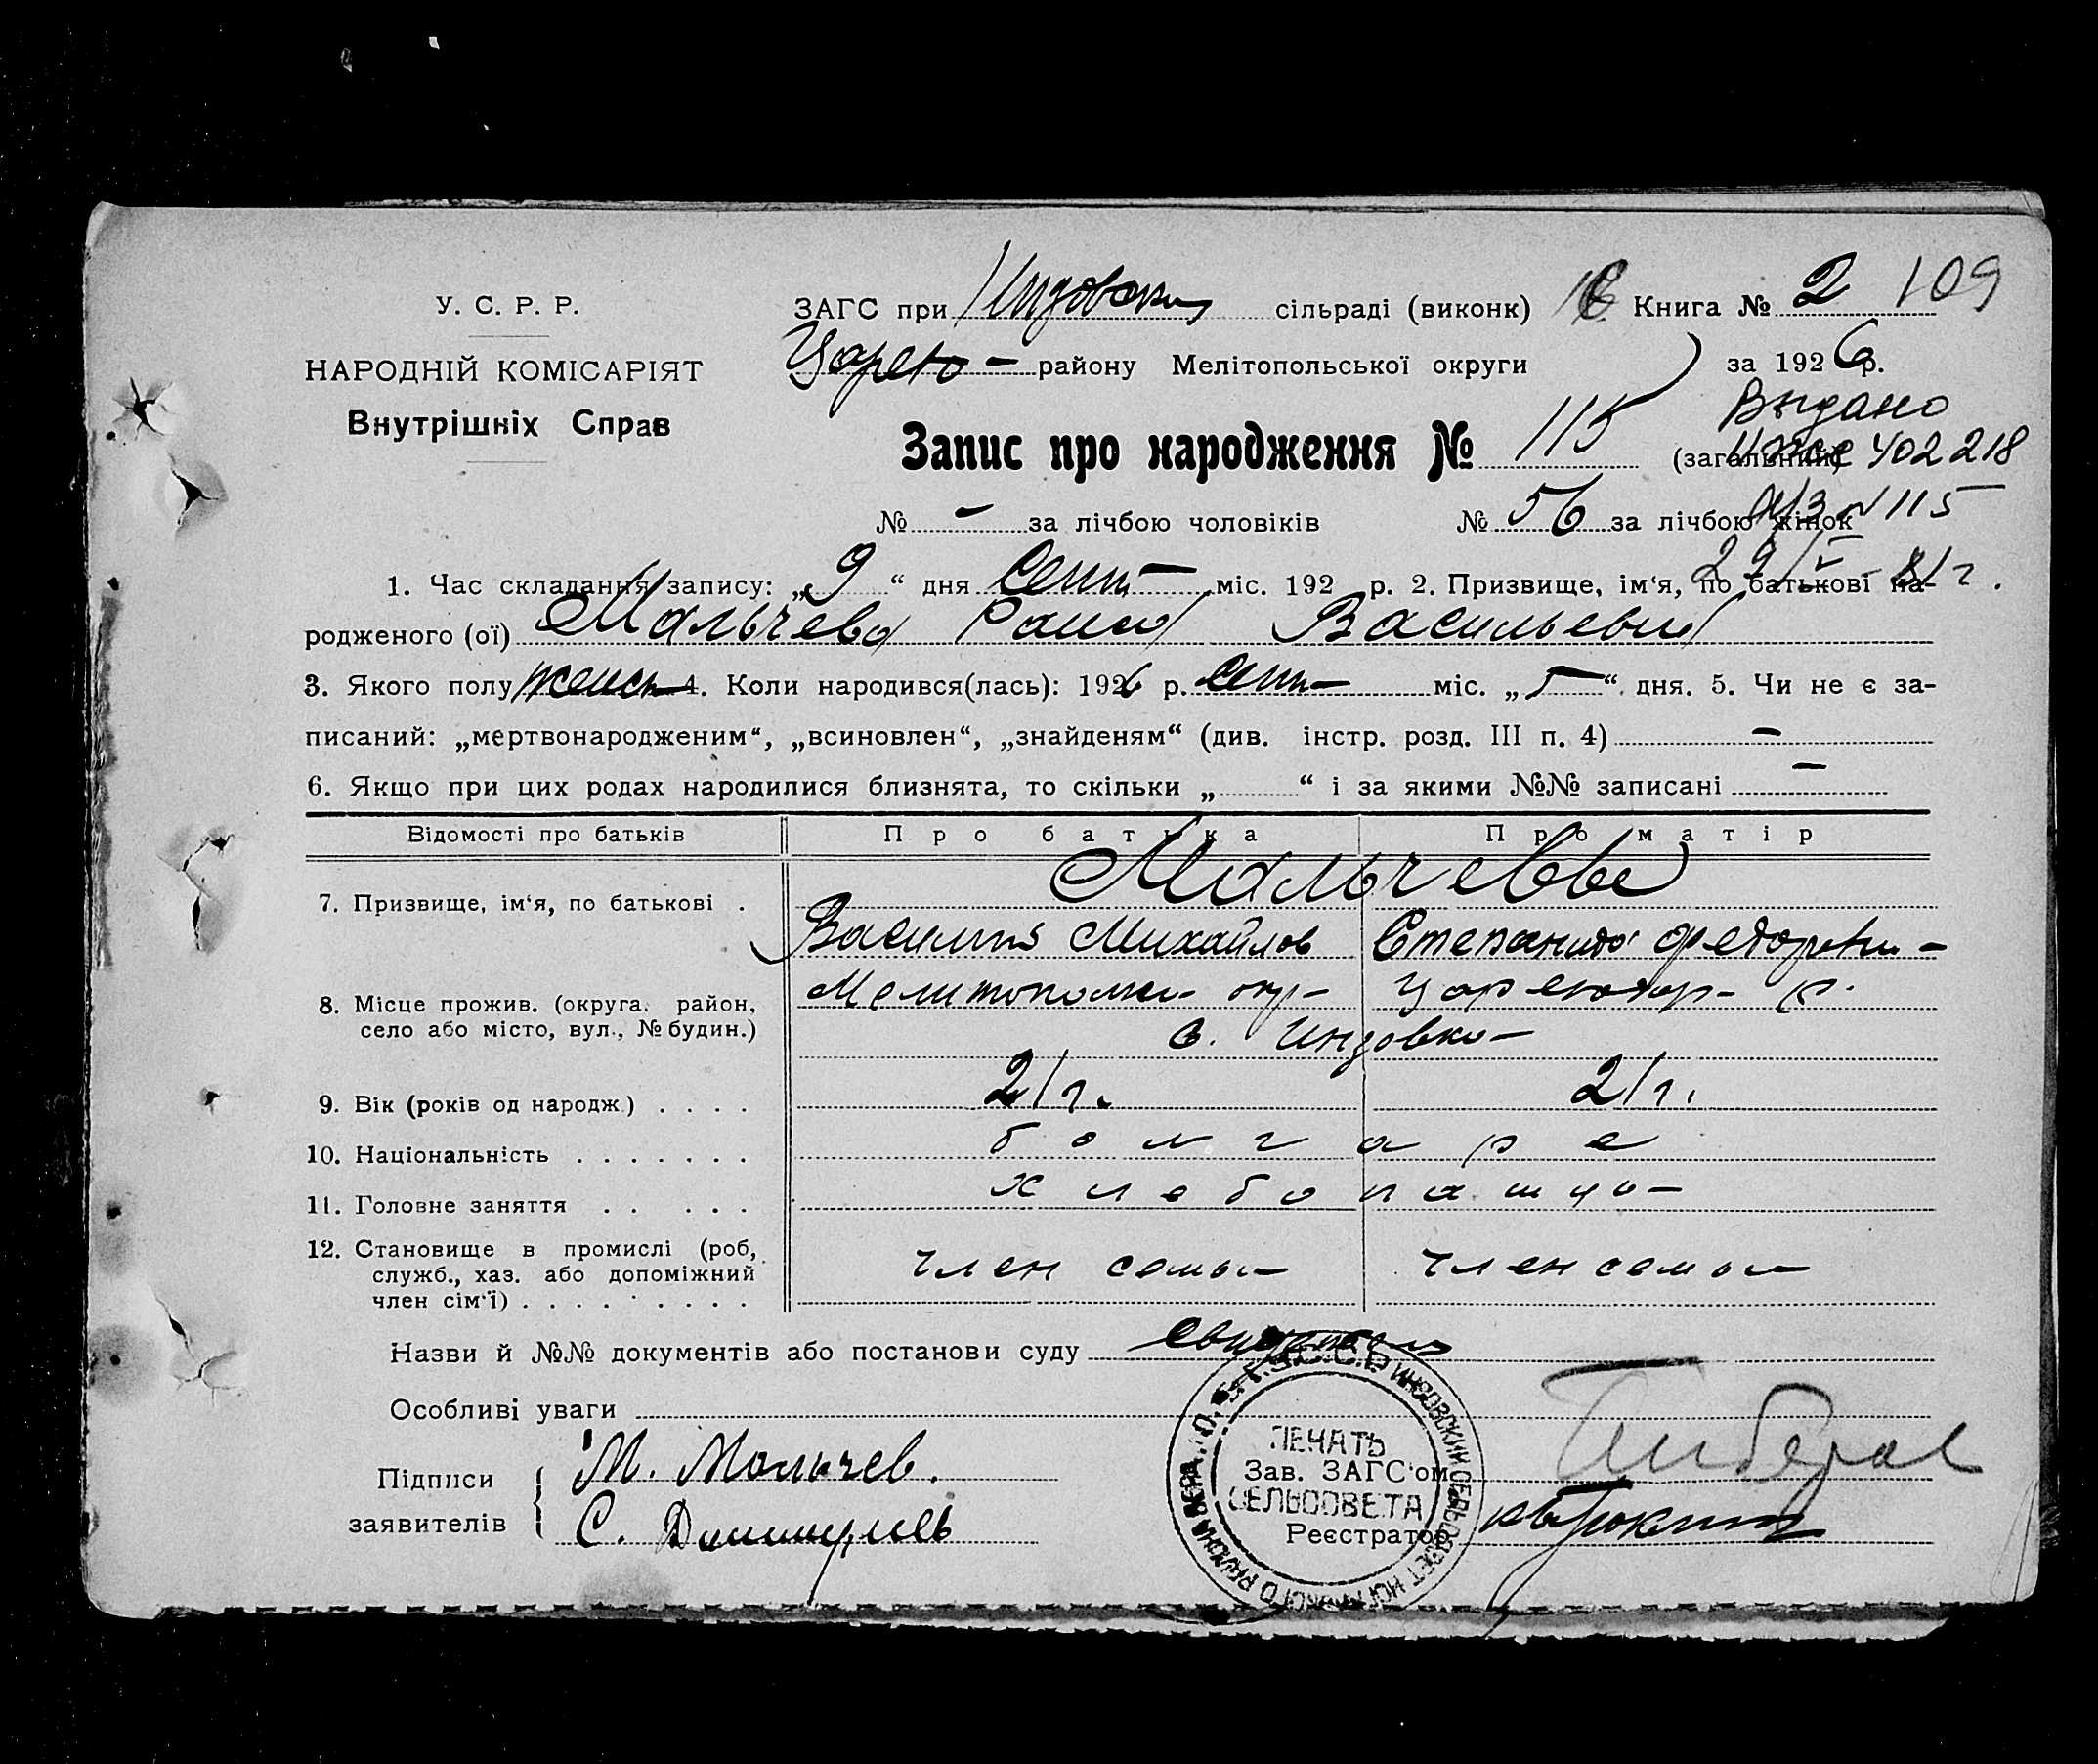 У. С. Р. Р.
НАРОДНІЙ КОМІСАРІЯТ
Внутрішніх Справ
ЗАГС при Индовском сільраді (виконк) Книга № 2 109
Царево – району Мелітопольської округи за 1926 р.
Выдано
Запис про народження № 115 (загальний) 402218
№ – за лічбою чоловіків № 56 за лічбою жінок а/з N 115
29/V–81 г.
1. Час складання запису: „9“ дня Сент– міс. 192 р. 2. Призвище, ім‘я, по батькові на-
родженого (ої) Мальчева Раиса Васильевна
3. Якого полу женск– 4. Коли народився(лась): 1926 р. сент– міс. „5“ дня. 5. Чи не є за-
писаний: „мертвонародженим“, „всиновлен“, „знайденям“ (див. інстр. розд. III п. 4) –
6. Якщо при цих родах народилися близнята, то скільки „ “ і за якими №№ записані –
Відомості про батьків Про батька Про матір
Мальчевы
7. Призвище, ім‘я, по батькові .
Василий Михайлов Степанида Федоровн–
8. Місце прожив. (округа. район, село або місто, вул., № будин.)
Мелитопольск– окр– Царевотор– р.
с. Индовка–
9. Вік (років од народж.) . . . . 21 г. 21 г.
10. Національність . . . . . . . болгаре
11. Головне заняття . . . . . хлебопашцы–
12. Становище в промислі (роб, служб., хаз. або допоміжний член сім‘ї) . . . . . . . . .
член семьи член семьи
Назви й №№ документів або постанови суду
Особливі уваги
Підписи М. Мальчев.
заявителів
С. Димитриев
Зав. ЗАГС‘ом
Реєстратор
ПЕЧАТЬ
СЕЛЬСОВЕТА